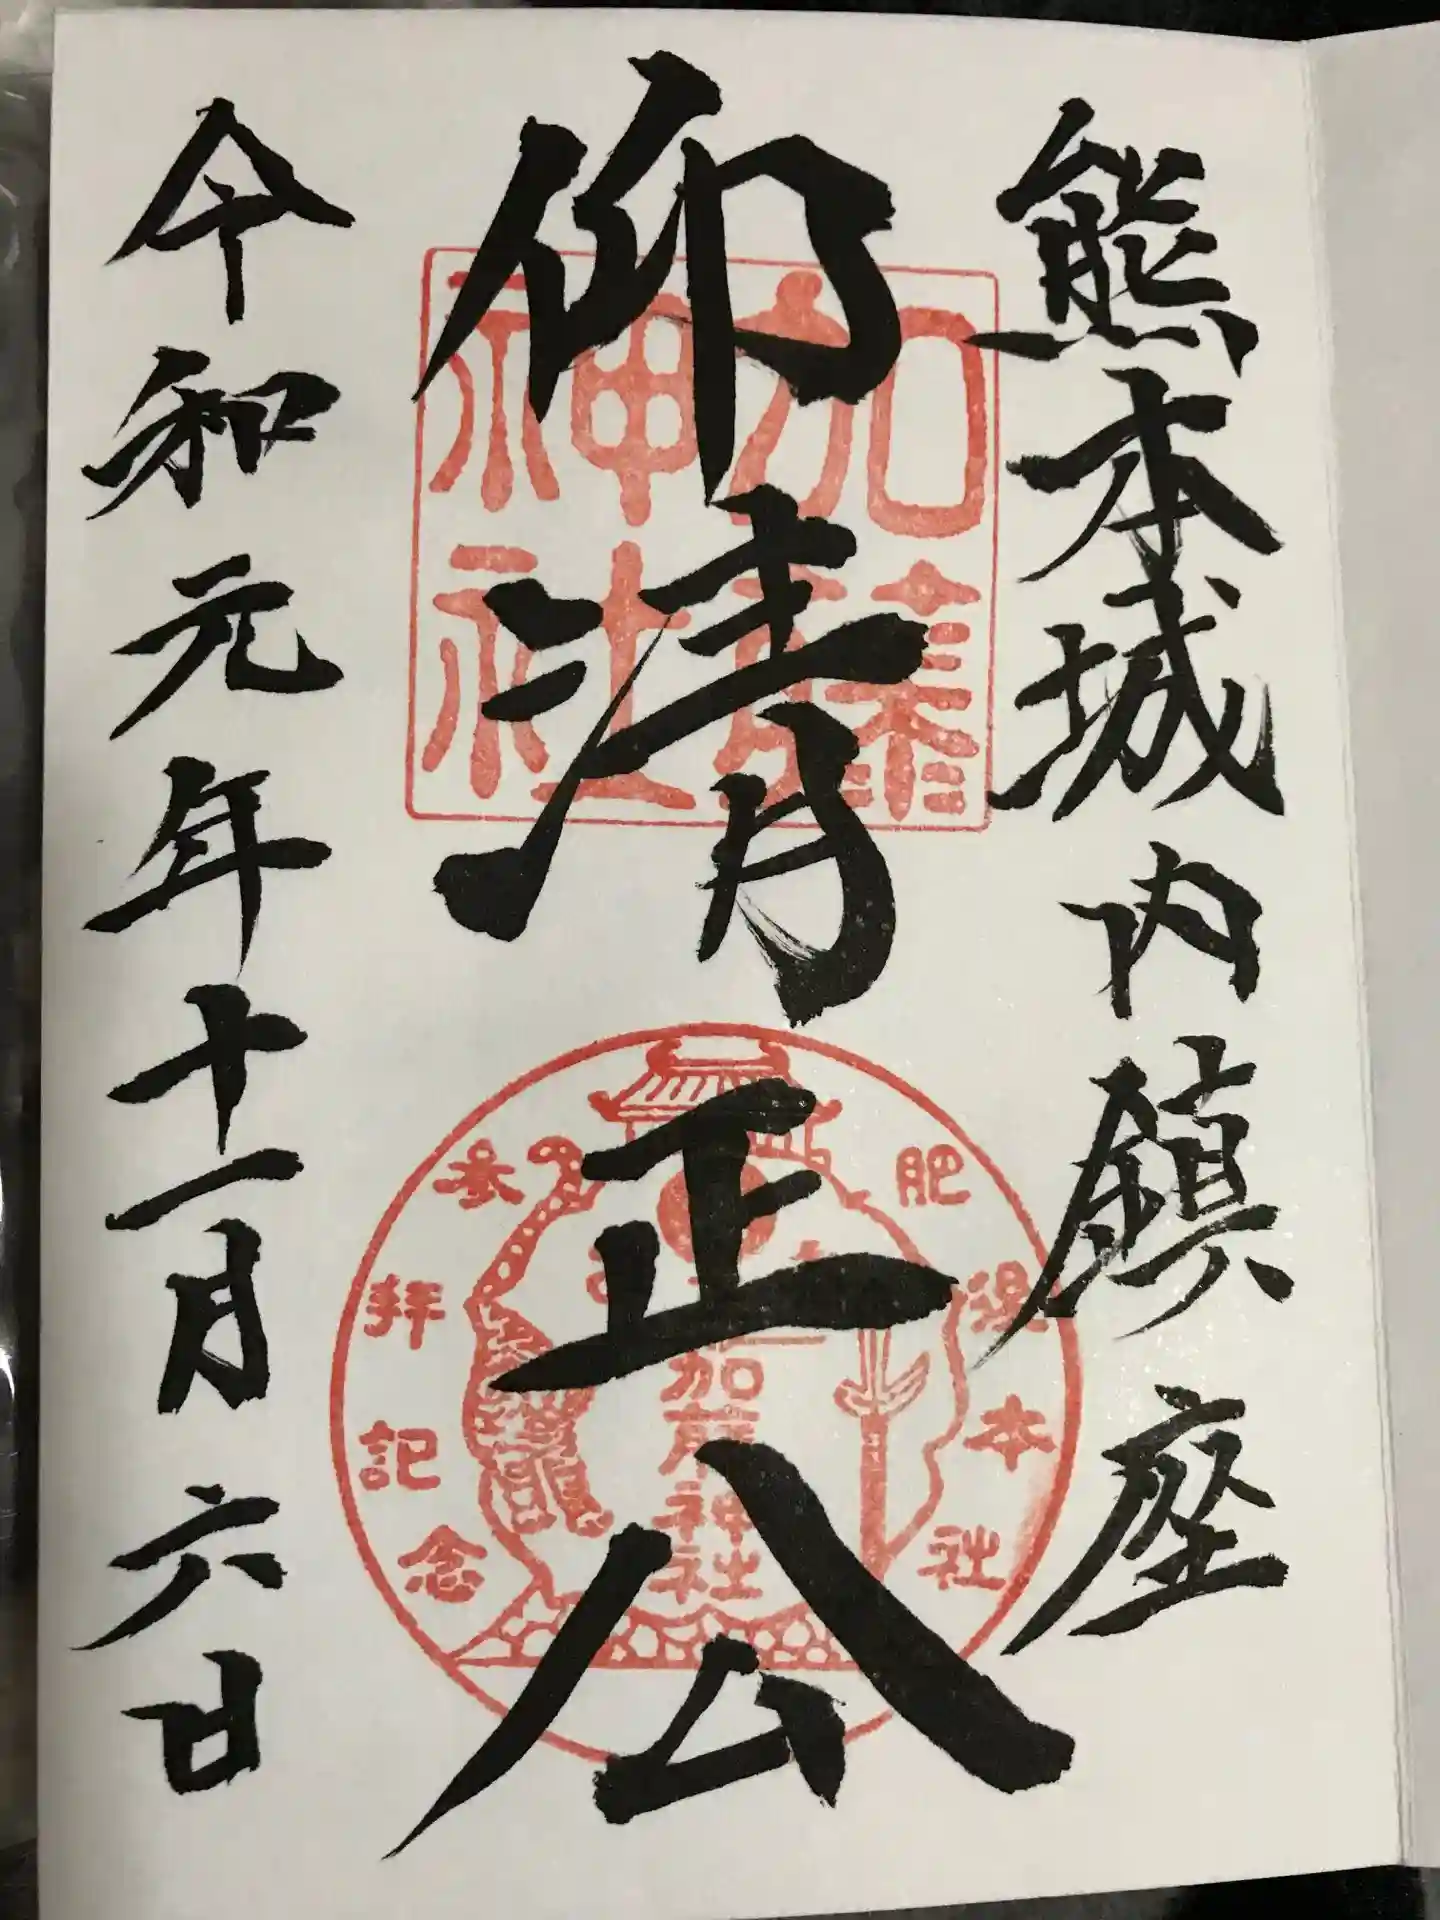 熊本城内鎮座
仰清正公
令和元年十一月六日
加藤
神社
肥後本社
参拝記念
加藤神社